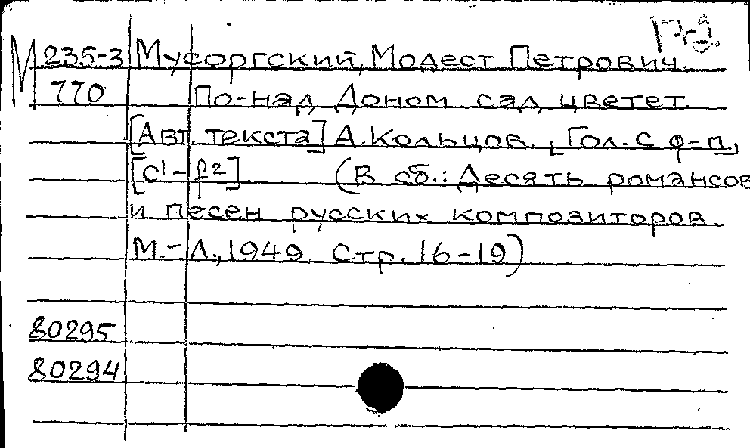 М 235-3 Мусоргский, Модест Петрович.
770 По-над Доном сад цветет.
[Авт. текста] А. Кольцов. Гол. с ф-п.,
[c¹-f²] (В сб.: Десять романсов
и песен русских композиторов.
М.-Л., 1949. Стр. 16-19)
80295
80294